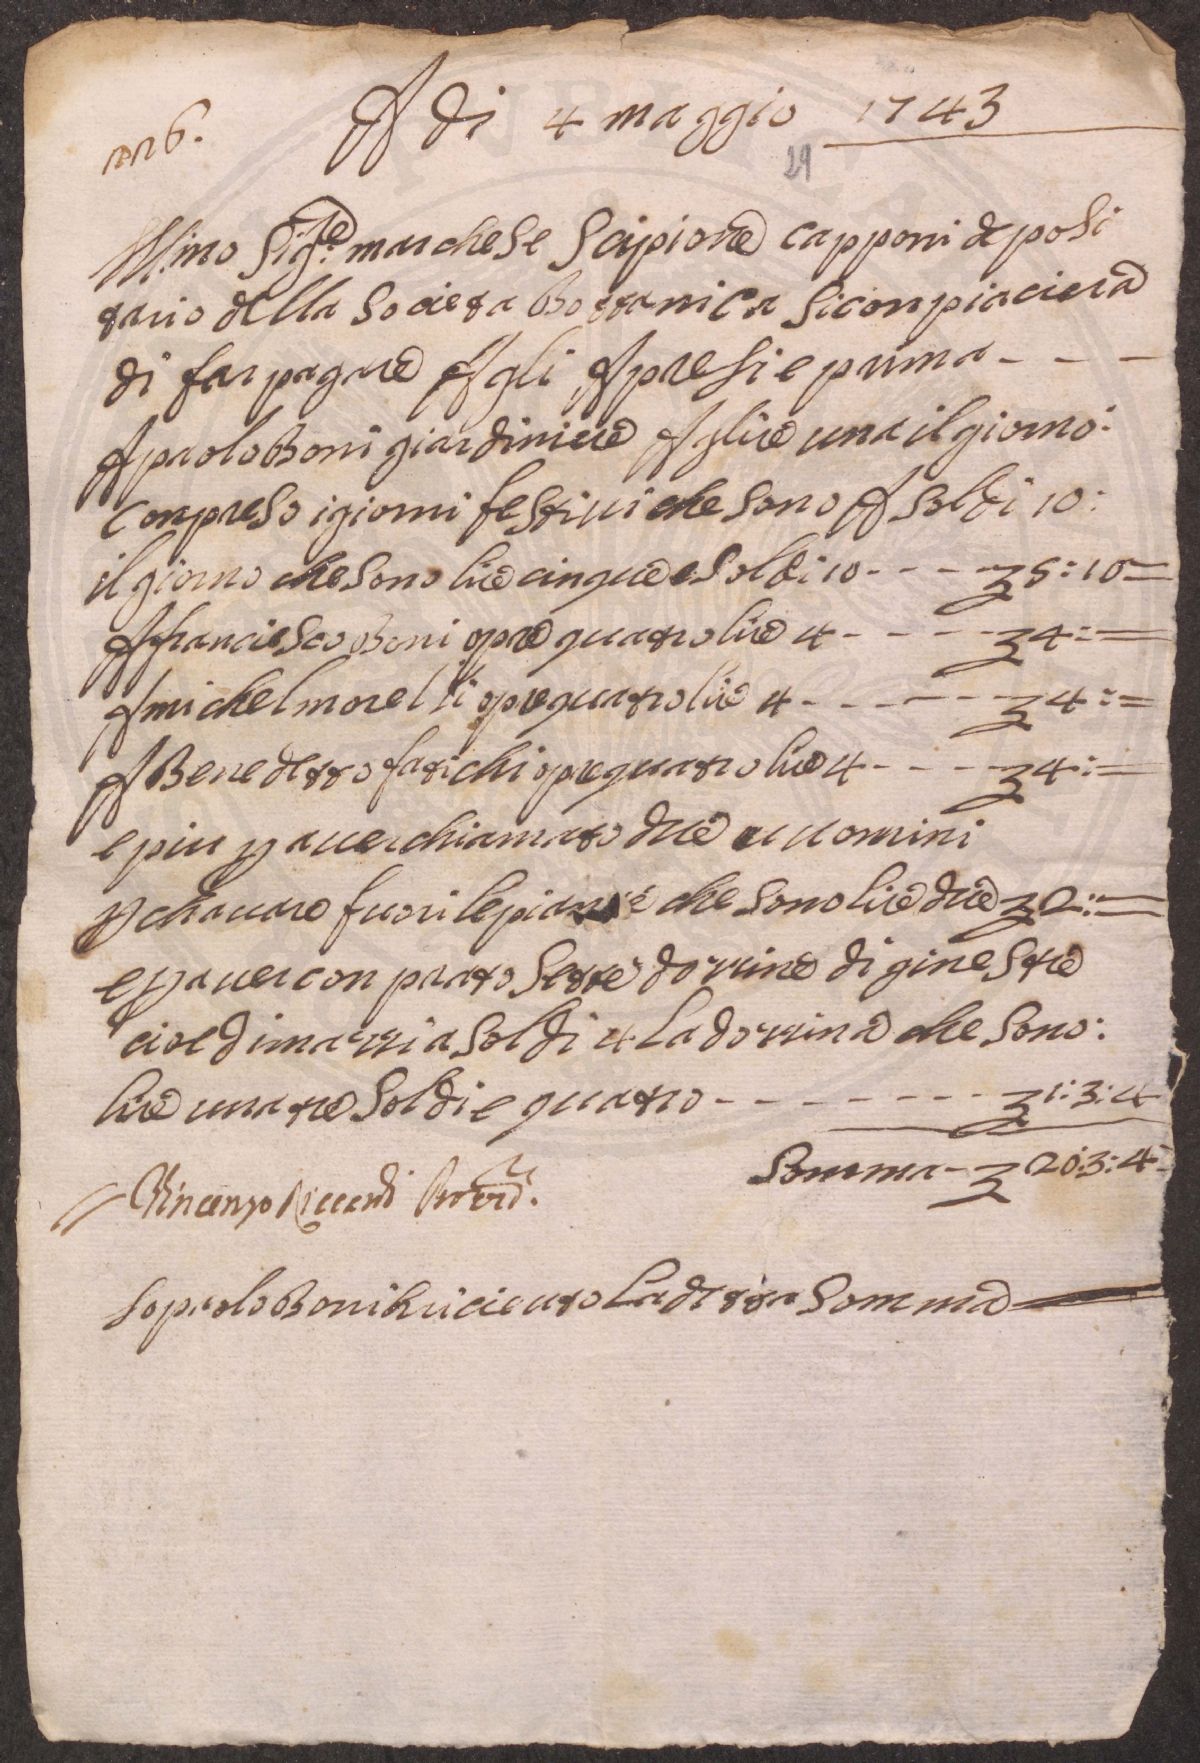 A di 4 maggio 1743
n 6.
29
Ill:mo Sig:re marchese Scipione capponi deposi
tario della Societa Bottanica Siconpiacierà
di far pagare A gli Apresie prima - - -
Apaolo Boni giardiniere A lire una il giorno:
Conpreso i giorni festiui che sono A soldi 10:
il giorno che sono lire cinque e Soldi 10 - - - - £ 5:10=
Afranciesco Boni opre quatro lire 4 - - - - £ 4:=
Amichel morelli opre quatro lire 4 - - - - - £ 4:=
A Benedetto fatichi opre quatro lire 4 - - - - £ 4:=
e piu p auer chiamato due uuomini
p chauare fuori le piante che sono lire due £ 2:=
e p auer conprato Sette dozzine di ginestre
cioe di mazzi a Soldi 4 La dozzina che Sono:
lire una tre Soldi e quatro - - - - - - - - £ 1:3:4
Somma - £ 20:3:4
Vincenzo Riccardi Provvd.re
Io paolo Boni ho riceuto La detta Somma